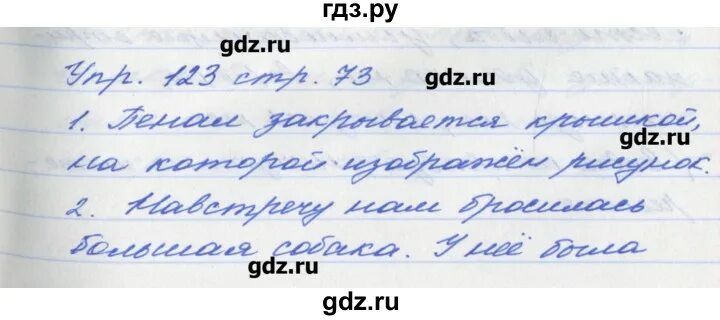 гдз.ру
gdz.ru
Упр. 123 стр. 73
gdz.ru
1. Пенал закрывается крышкой,
gdz.ru
на которой изображён рисунок.
2. Навстречу нам бросилась
большая собака. У неё была
gdz.ru
gdz.ru